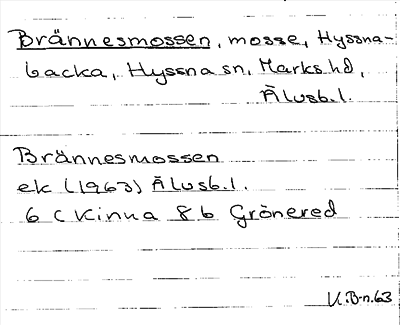 Brännesmossen, mosse, Hyssna-
backa, Hyssna sn, Marks hd,
Älvsb.l.
Brännesmossen
ek (1963) Älvsb.l.
6 C Kinna 8 b Grönered
U.B-n.63